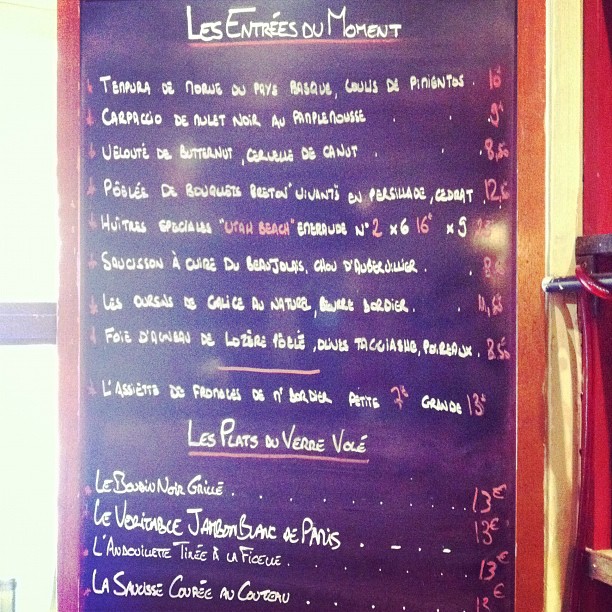 LES ENTRÉES DU MOMENT
TEMPURA DE MORUE DU PAYS BASQUE, COULIS DE PIMIENTOS. 10€
CARPACCIO DE MULET NOIR AU PAMPLEMOUSSE . . 9€
VELOUTÉ DE BUTTERNUT, CERVELLE DE CANUT . . 8,50
POÊLÉE DE BOUQUETS BRETON VIVANTS EN PERSILLADE, CÉDRAT 12,
HUÎTRES SPECIALES "UTAH BEACH" EMERAUDE N° 2 x 6 16€ x 9
SAUCISSON À CUIRE DU BEAUJOLAIS, CHOU D'AUBERVILLIER .
LES OURSINS DE GALICE AU NATUREL, BEURRE BORDIER .
FOIE D'AGNEAU DE LOZÈRE POÊLÉ, OLIVES TAGGIASHE, POIREAUX . 8.50
L'ASSIETTE DE FROMAGES DE Mr BORDIER PETITE 7€ GRANDE 13€
LES PLATS DU VERRE VOLÉ
LE BOUDIN NOIR GRILLÉ . . . . . . . 13€
LE VERITABLE JAMBON BLANC DE PARIS . - - . 13€
L'ANDOUILLETTE TIRÉE À LA FICELLE . . . . . 13€
LA SAUCISSE COUPÉE AU COUTEAU . . . . 13€